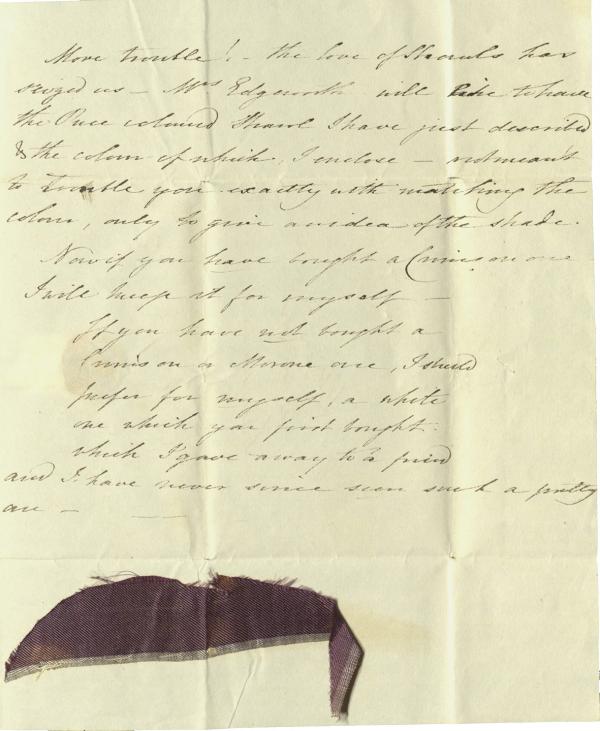 More trouble! - the love of Shawls has
seized us - Mrs Edgeworth will like to have
the Puce coloured Shawl I have just described
& the colour of which, I enclose - not meant
to trouble you exactly with matching the
colour, only to give an idea of the shade.
Now if you have bought a Crimson one
I will keep it for myself -
If you have not bought a
Crimson or Morone one, I should
prefer for myself, a white
one which you first bought
which I gave away to a friend
and I have never since seen such a pretty
one -